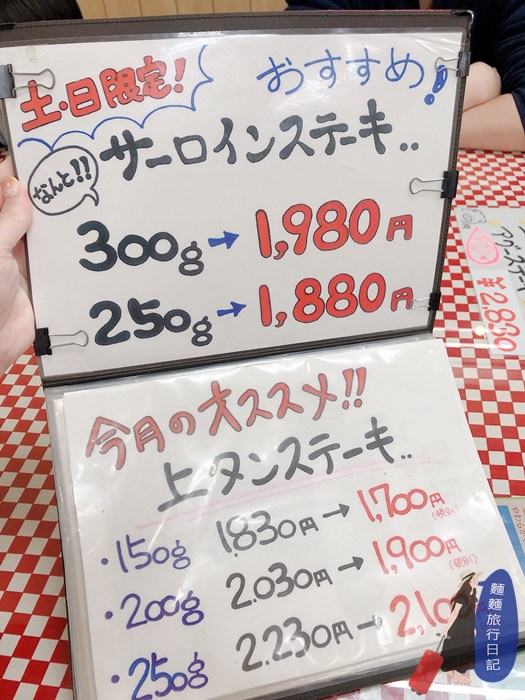 土・日限定!
おすすめ!
なんと!!
サーロインステーキ..
300g → 1,980円
250g → 1,880円
¥2,830
今月のオススメ!!
上タンステーキ..
・150g 1,830円 → 1,700円
・200g 2.030円 → 1,900円
・250g 2.230円 → 2,10
麵麵旅行日記